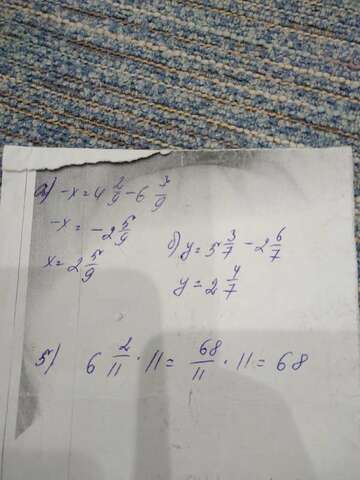 а) -x = 4 2/9 - 6 7/9
-x = -2 5/9
x = 2 5/9
б) y = 5 3/7 - 2 6/7
y = 2 4/7
5) 6 2/11 · 11 = 68/11 · 11 = 68